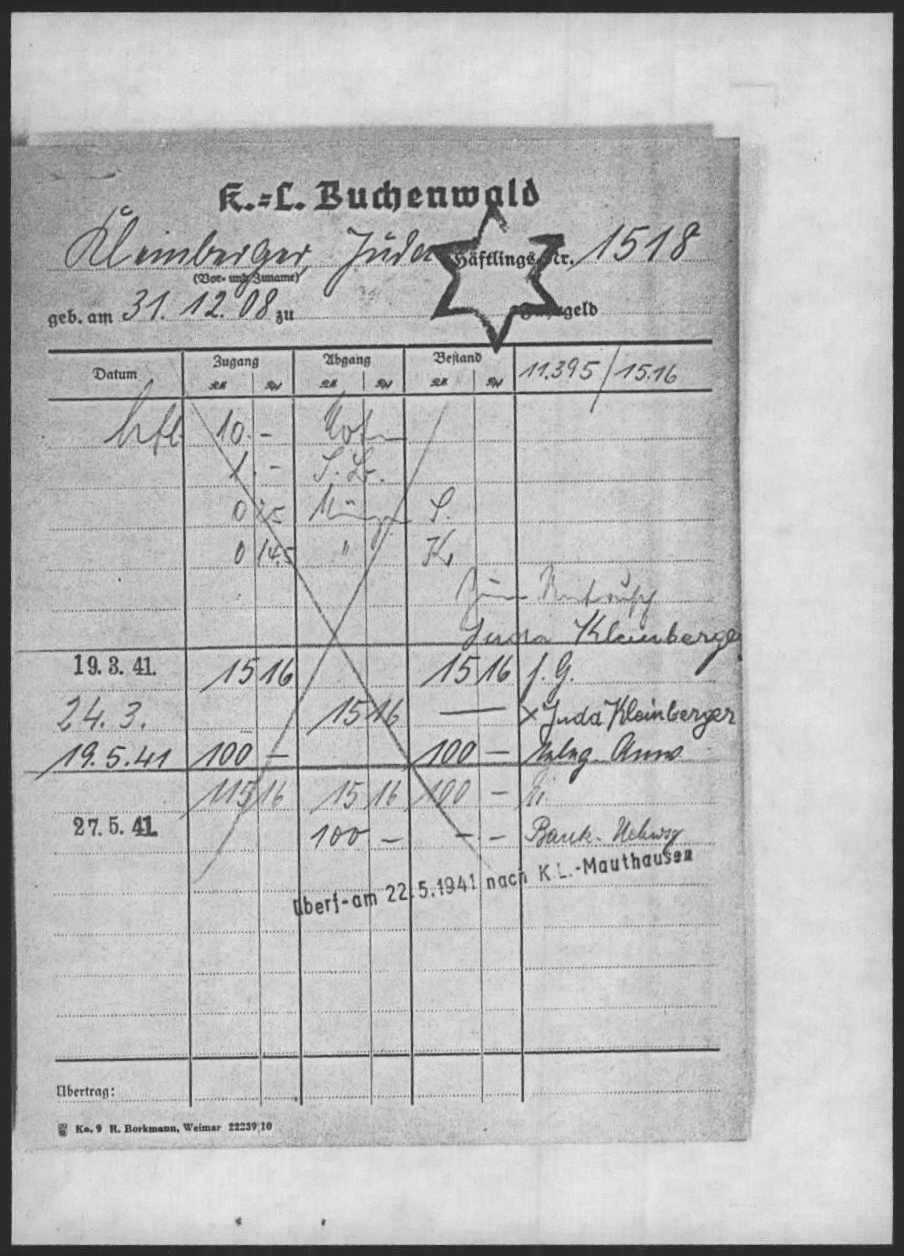 K.=L. Buchenwald
Kleinberger, Juda Häftlings-Nr. 1518
(Vor- und Zuname)
geb. am 31. 12. 08 zu
Datum Zugang Abgang Bestand 11.395/15.16
RM Rpf RM Rpf RM Rpf
10.-
1.-
0 S.
0 145 " K.
Juda Kleinberger
19.3.41. 15 16 15 16 f. G.
24. 3. 15 16 — x Juda Kleinberger
19.5.41 100 — 100 —
115 16 15 16 100 —
27.5.41. 100 — — - Bank-
überf-am 22.5.1941 nach K.L.-Mauthausen
Übertrag:
Ko. 9 R. Borkmann, Weimar 22239/10